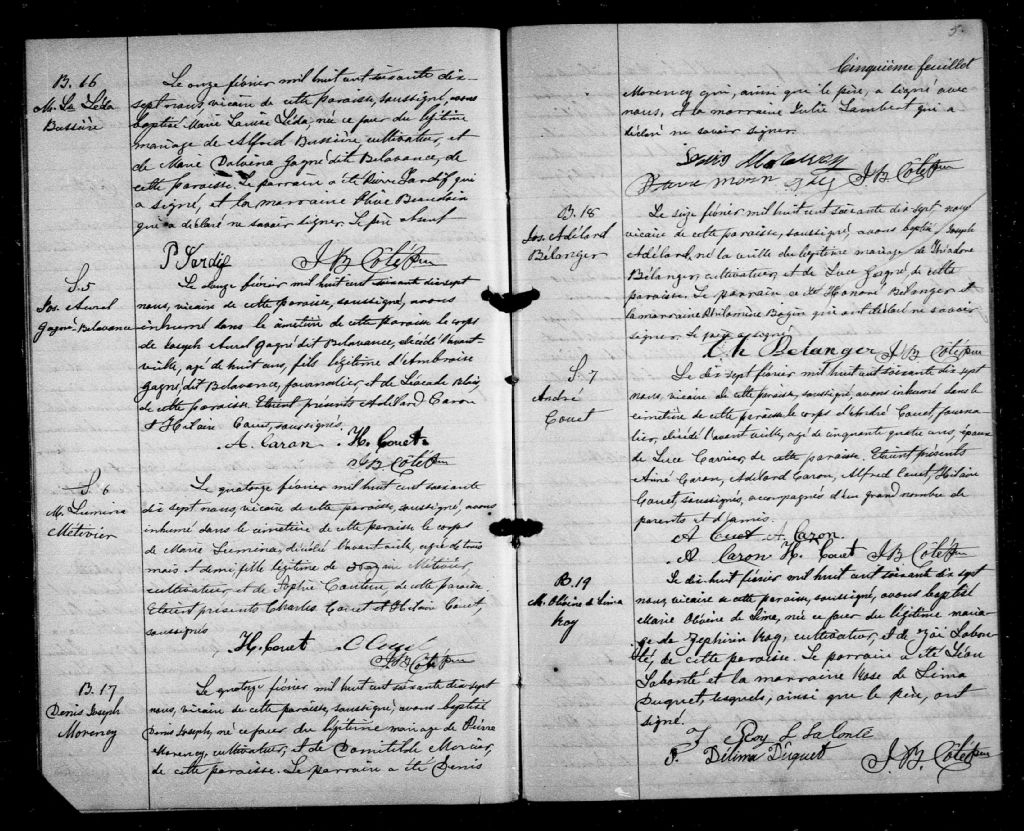 B. 16
M. Ls Léda
Bussière
Le onze février mil huit cent soixante dix-
sept nous, vicaire de cette paroisse, soussigné, avons
baptisé Marie Louise Léda, née ce jour du légitime
mariage de Alfred Bussière cultivateur, et
de Marie Dalvina Gagné dit Belavance, de
cette paroisse. Le parrain a été Pierre Tardif qui
a signé, et la marraine Olive Beaudoin
qui a déclaré ne savoir signer. Le père absent
P Tardif J B Côté Ptre
S. 5
Jos. Aurel
Gagné-Belavance
Le onze février mil huit cent soixante dix sept
nous, vicaire de cette paroisse, soussigné, avons
inhumé dans le cimetière de cette paroisse le corps
de Joseph Aurel Gagné dit Belavance, décédé l'avant
veille, agé de huit ans, fils légitime d'Ambroise
Gagné dit Belavance, journalier et de Léocade Blais,
de cette paroisse. Etaient présents Adélard Caron
et Hilaire Couet, soussignés.
A. Caron H. Couet
J B Côté Ptre
S. 6
M. Lumina
Métivier
Le quatorze février mil huit cent soixante
dix sept nous, vicaire de cette paroisse, soussigné, avons
inhumé dans le cimetière de cette paroisse le corps
de Marie Lumina, décédée l'avant veille, agée de trois
mois et demi, fille légitime de Métivier,
cultivateur et de Sophie Couture, de cette paroisse
Etaient présents Charles Couet et Hilaire Couet,
soussignés
H. Couet C Couet
J. B. Côté Ptre
B. 17
Denis Joseph
Morency
Le quatorze février mil huit cent soixante dix sept
nous, vicaire de cette paroisse, soussigné, avons baptisé
Denis Joseph, né ce jour du légitime mariage de Pierre
Morency, cultivateur, et de Domitilde Mercier,
de cette paroisse. Le parrain a été Denis
5.
Cinquième feuillet
Morency qui, ainsi que le père, a signé avec
nous, et la marraine Julie Lambert qui a
déclaré ne savoir signer.
Morency
J B Côté Ptre
B. 18
Jos. Adélard
Bélanger
Le seize février mil huit cent soixante dix sept nous
vicaire de cette paroisse, soussigné, avons baptisé Joseph
Adélard, né la veille du légitime mariage de Théodore
Bélanger, cultivateur, et de Luce Gagné, de cette
paroisse. Le parrain a été Honoré Bélanger et
la marraine Philomène Bazin qui ont déclaré ne savoir
signer. Le père a signé
Th Belanger J B Côté Ptre
S. 7
André
Couet
Le dix sept février mil huit cent soixante dix sept
nous, vicaire de cette paroisse, soussigné, avons inhumé dans le
cimetière de cette paroisse le corps d'André Couet, journa-
lier, décédé l'avant veille, agé de cinquante quatre ans, époux
de Luce Carrier, de cette paroisse. Etaient présents
Aimé Caron, Adélard Caron, Alfred Couet, Hilaire
Couet soussignés, accompagnés d'un grand nombre de
parents et d'amis.
A Couet A. Caron
A. Caron H. Couet J B Côté Ptre
B. 19
M. Olivine de Lima
Roy
Le dix-huit février mil huit cent soixante dix sept
nous, vicaire de cette paroisse, soussigné, avons baptisé
Marie Olivine de Lima, née ce jour du légitime maria-
ge de Zéphirin Roy, cultivateur, et de Zoé Labon-
té, de cette paroisse. Le parrain a été Léon
Labonté et la marraine Rose de Lima
Duquet, lesquels, ainsi que le père, ont
signé.
Z Roy L Labonté
Délima Duquet J. B. Côté Ptre